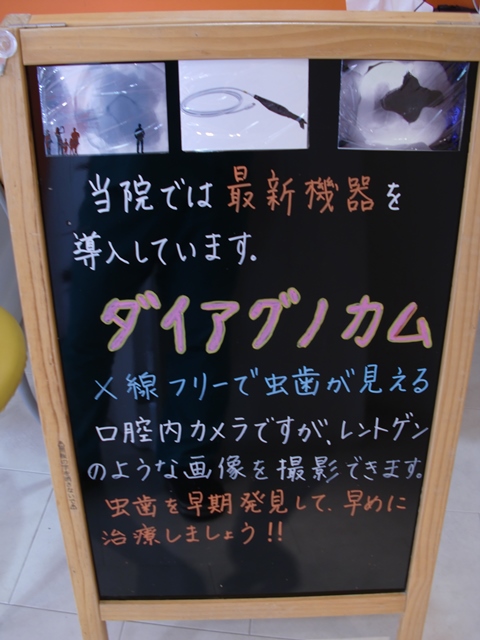 当院では最新機器を
導入しています。
ダイアグノカム
X線フリーで虫歯が見える
口腔内カメラですが、レントゲン
のような画像を撮影できます。
虫歯を早期発見して、早めに
治療しましょう!!